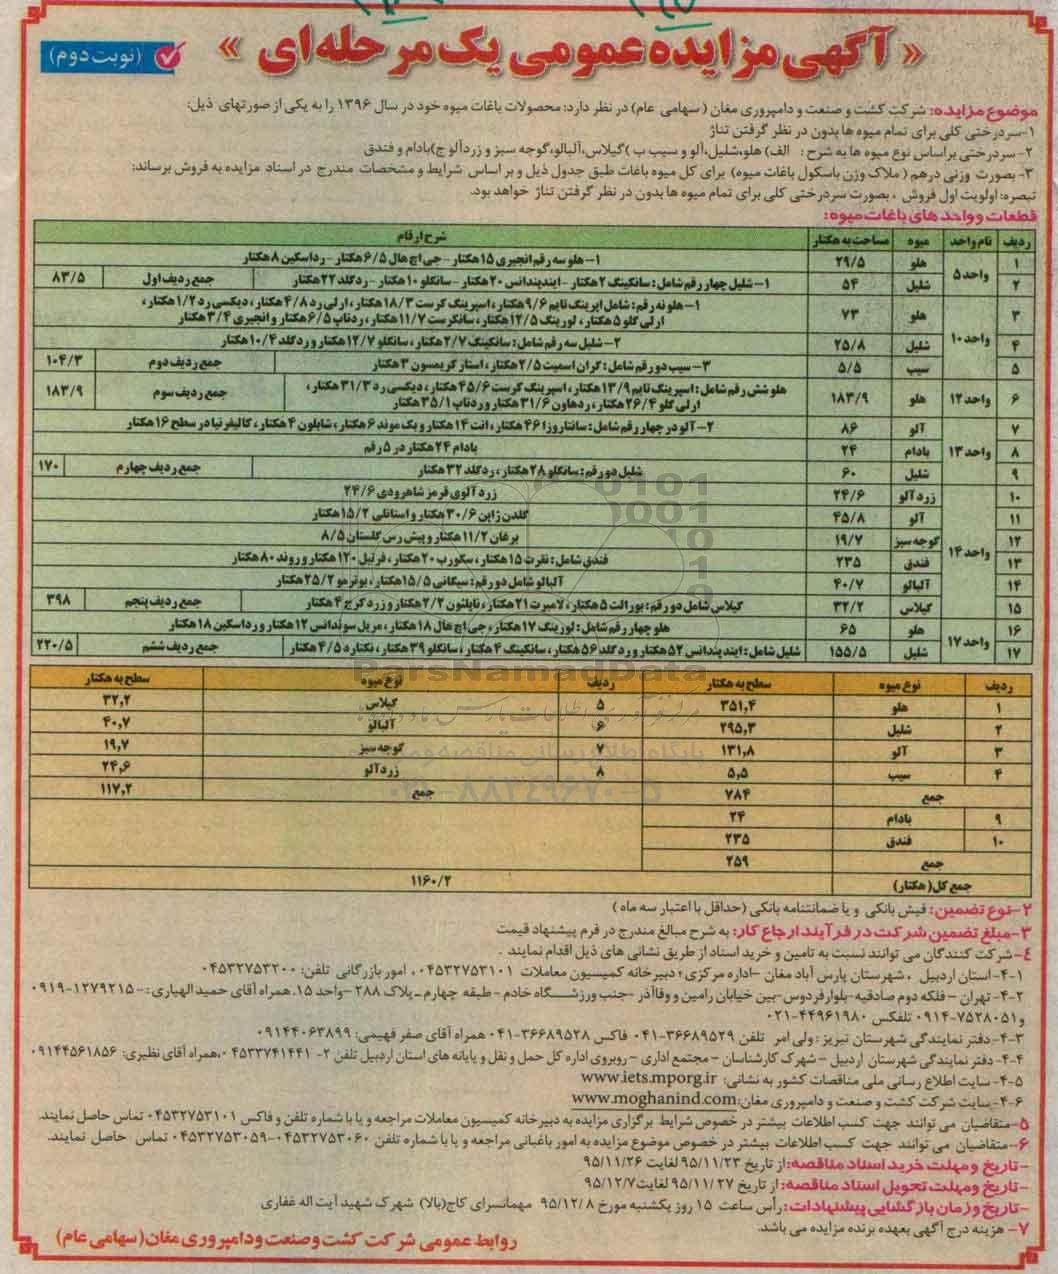 « آگهی مزایده عمومی یک مرحله‌ای »
(نوبت دوم)
موضوع مزایده: شرکت کشت و صنعت و دامپروری مغان (سهامی عام) در نظر دارد: محصولات باغات میوه خود در سال ۱۳۹۶ را به یکی از صورتهای ذیل:
۱-سردرختی کلی برای تمام میوه ها بدون در نظر گرفتن تناژ
۲- سردرختی براساس نوع میوه ها به شرح: الف) هلو،شلیل،آلو و سیب ب)گیلاس،آلبالو،گوجه سبز و زردآلو ج)بادام و فندق
۳- بصورت وزنی درهم (ملاک وزن باسکول باغات میوه) برای کل میوه باغات طبق جدول ذیل و بر اساس شرایط و مشخصات مندرج در اسناد مزایده به فروش برساند:
تبصره: اولویت اول فروش ، بصورت سردرختی کلی برای تمام میوه ها بدون در نظر گرفتن تناژ خواهد بود.
قطعات و واحد های باغات میوه:
ردیف نام واحد میوه مساحت به هکتار شرح ارقام
۱ واحد ۵ هلو ۲۹/۵ ۱- هلو سه رقم انجیری ۱۵ هکتار - جی اچ هال ۶/۵ هکتار - رداسکین ۸ هکتار
۲ شلیل ۵۴ ۱- شلیل چهار رقم شامل: سانکینگ ۲ هکتار - ایندپندانس ۲۰ هکتار - سانگلو ۱۰ هکتار - ردگلد ۲۲ هکتار جمع ردیف اول ۸۳/۵
۳ واحد ۱۰ هلو ۷۳ ۱- هلو نه رقم: شامل اپرینگ تایم ۹/۶ هکتار، اسپرینگ کرست ۱۸/۳ هکتار، ارلی رد ۴/۸ هکتار، دیکسی رد ۱/۲ هکتار،
ارلی گلو ۵ هکتار، لورینگ ۱۲/۵ هکتار، سانکرست ۱۱/۷ هکتار، ردتاپ ۶/۵ هکتار و انجیری ۳/۴ هکتار
۴ شلیل ۲۵/۸ ۲- شلیل سه رقم شامل: سانکینگ ۲/۷ هکتار، سانگلو ۱۲/۷ هکتار و ردگلد ۱۰/۴ هکتار
۵ سیب ۵/۵ ۳- سیب دو رقم شامل: گران اسمیت ۲/۵ هکتار، استار کریمسون ۳ هکتار جمع ردیف دوم ۱۰۴/۳
۶ واحد ۱۲ هلو ۱۸۳/۹ هلو شش رقم شامل: اسپرینگ تایم ۱۳/۹ هکتار، اسپرینگ کرست ۴۵/۶ هکتار، دیکسی رد ۳۱/۳ هکتار،
ارلی گلو ۲۶/۴ هکتار، ردهاون ۳۱/۶ هکتار و ردتاپ ۳۵/۱ هکتار جمع ردیف سوم ۱۸۳/۹
۷ واحد ۱۳ آلو ۸۶ ۲- آلو در چهار رقم شامل: سانتاروزا ۴۶ هکتار، انت ۱۴ هکتار و بک موند ۶ هکتار، شابلون ۴ هکتار، کالیفرنیا در سطح ۱۶ هکتار
۸ بادام ۲۴ بادام ۲۴ هکتار در ۵ رقم
۹ شلیل ۶۰ شلیل دو رقم: سانگلو ۲۸ هکتار، ردگلد ۳۲ هکتار جمع ردیف چهارم ۱۷۰
۱۰ واحد ۱۴ زردآلو ۲۴/۶ زردآلوی قرمز شاهرودی ۲۴/۶
۱۱ آلو ۴۵/۸ گلدن ژاپن ۳۰/۶ هکتار و استانلی ۱۵/۲ هکتار
۱۲ گوجه سبز ۱۹/۷ برغان ۱۱/۲ هکتار و پیش رس گلستان ۸/۵
۱۳ فندق ۲۳۵ فندق شامل: نقرت ۱۵ هکتار، سگورب ۲۰ هکتار، فرتیل ۱۲۰ هکتار و روند ۸۰ هکتار
۱۴ آلبالو ۴۰/۷ آلبالو شامل دو رقم: سیگانی ۱۵/۵ هکتار، بوترمو ۲۵/۲ هکتار
۱۵ گیلاس ۳۲/۲ گیلاس شامل دو رقم: بورالت ۵ هکتار، لامبرت ۲۱ هکتار، ناپلئون ۲/۲ هکتار و زرد کرج ۴ هکتار جمع ردیف پنجم ۳۹۸
۱۶ واحد ۱۷ هلو ۶۵ هلو چهار رقم شامل: لورینگ ۱۷ هکتار، جی اچ هال ۱۸ هکتار، مریل سوندانس ۱۲ هکتار و رداسکین ۱۸ هکتار
۱۷ شلیل ۱۵۵/۵ شلیل شامل: ایندپندانس ۵۲ هکتار و ردگلد ۵۶ هکتار، سانکینگ ۴ هکتار، سانگلو ۳۹ هکتار، نکتارد ۴/۵ هکتار جمع ردیف ششم ۲۲۰/۵
ردیف نوع میوه سطح به هکتار ردیف نوع میوه سطح به هکتار
۱ هلو ۳۵۱,۴ ۵ گیلاس ۳۲,۲
۲ شلیل ۲۹۵,۳ ۶ آلبالو ۴۰,۷
۳ آلو ۱۳۱,۸ ۷ گوجه سبز ۱۹,۷
۴ سیب ۵,۵ ۸ زردآلو ۲۴,۶
جمع ۷۸۴ جمع ۱۱۷,۲
۹ بادام ۲۴
۱۰ فندق ۲۳۵
جمع ۲۵۹
جمع کل(هکتار) ۱۱۶۰/۲
ParsNamadData
۰۲۱-۸۸۳۴۹۶۷۰-۵
۲-نوع تضمین: فیش بانکی و یا ضمانتنامه بانکی (حداقل با اعتبار سه ماه)
۳-مبلغ تضمین شرکت در فرآیند ارجاع کار: به شرح مبالغ مندرج در فرم پیشنهاد قیمت
۴-شرکت کنندگان می توانند نسبت به تامین و خرید اسناد از طریق نشانی های ذیل اقدام نمایند .
۴-۱- استان اردبیل ، شهرستان پارس آباد مغان -اداره مرکزی؛ دبیرخانه کمیسیون معاملات ۰۴۵۳۲۷۵۳۱۰۱ ، امور بازرگانی تلفن: ۰۴۵۳۲۷۵۳۲۰۰
۴-۲- تهران - فلکه دوم صادقیه-بلوارفردوس-بین خیابان رامین و وفاآذر -جنب ورزشگاه خادم -طبقه چهارم-پلاک ۲۸۸ -واحد ۱۵. همراه آقای حمید الهیاری: ۱۲۷۹۲۱۵-۰۹۱۹
و ۷۵۲۸۰۵۱-۰۹۱۴ تلفکس ۴۴۹۶۱۹۸۰-۰۲۱
۴-۳-دفتر نمایندگی شهرستان تبریز: ولی امر تلفن ۳۶۶۸۹۵۲۹-۰۴۱ فاکس ۳۶۶۸۹۵۲۸-۰۴۱ همراه آقای صفر فهیمی: ۰۹۱۴۴۰۶۳۸۹۹
۴-۴- دفتر نمایندگی شهرستان اردبیل - شهرک کارشناسان - مجتمع اداری - روبروی اداره کل حمل و نقل و پایانه های استان اردبیل تلفن ۲- ۰۴۵۳۳۷۴۱۴۴۱ ،همراه آقای نظیری: ۰۹۱۴۴۵۶۱۸۵۶
۴-۵- سایت اطلاع رسانی ملی مناقصات کشور به نشانی: www.iets.mporg.ir
۴-۶-سایت شرکت کشت و صنعت و دامپروری مغان: www.moghanind.com
۵-متقاضیان می توانند جهت کسب اطلاعات بیشتر در خصوص شرایط برگزاری مزایده به دبیرخانه کمیسیون معاملات مراجعه و یا با شماره تلفن و فاکس ۰۴۵۳۲۷۵۳۱۰۱ تماس حاصل نمایند.
۶-متقاضیان می توانند جهت کسب اطلاعات بیشتر در خصوص موضوع مزایده به امور باغبانی مراجعه و یا با شماره تلفن ۰۴۵۳۲۷۵۳۰۶۰-۰۴۵۳۲۷۵۳۰۵۹ تماس حاصل نمایند.
-تاریخ و مهلت خرید اسناد مناقصه: از تاریخ ۹۵/۱۱/۲۳ لغایت ۹۵/۱۱/۲۶
-تاریخ و مهلت تحویل اسناد مناقصه: از تاریخ ۹۵/۱۱/۲۷ لغایت ۹۵/۱۲/۷
-تاریخ و زمان بازگشایی پیشنهادات: رأس ساعت ۱۵ روز یکشنبه مورخ ۹۵/۱۲/۸ مهمانسرای کاج(بالا) شهرک شهید آیت اله غفاری
۷- هزینه درج آگهی بعهده برنده مزایده می باشد.
روابط عمومی شرکت کشت و صنعت و دامپروری مغان(سهامی عام)